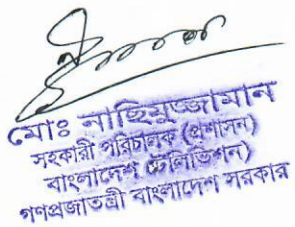 মোঃ নাছিমুজ্জামান
সহকারী পরিচালক (প্রশাসন)
বাংলাদেশ (টেলিভিশন)
গণপ্রজাতন্ত্রী বাংলাদেশ সরকার